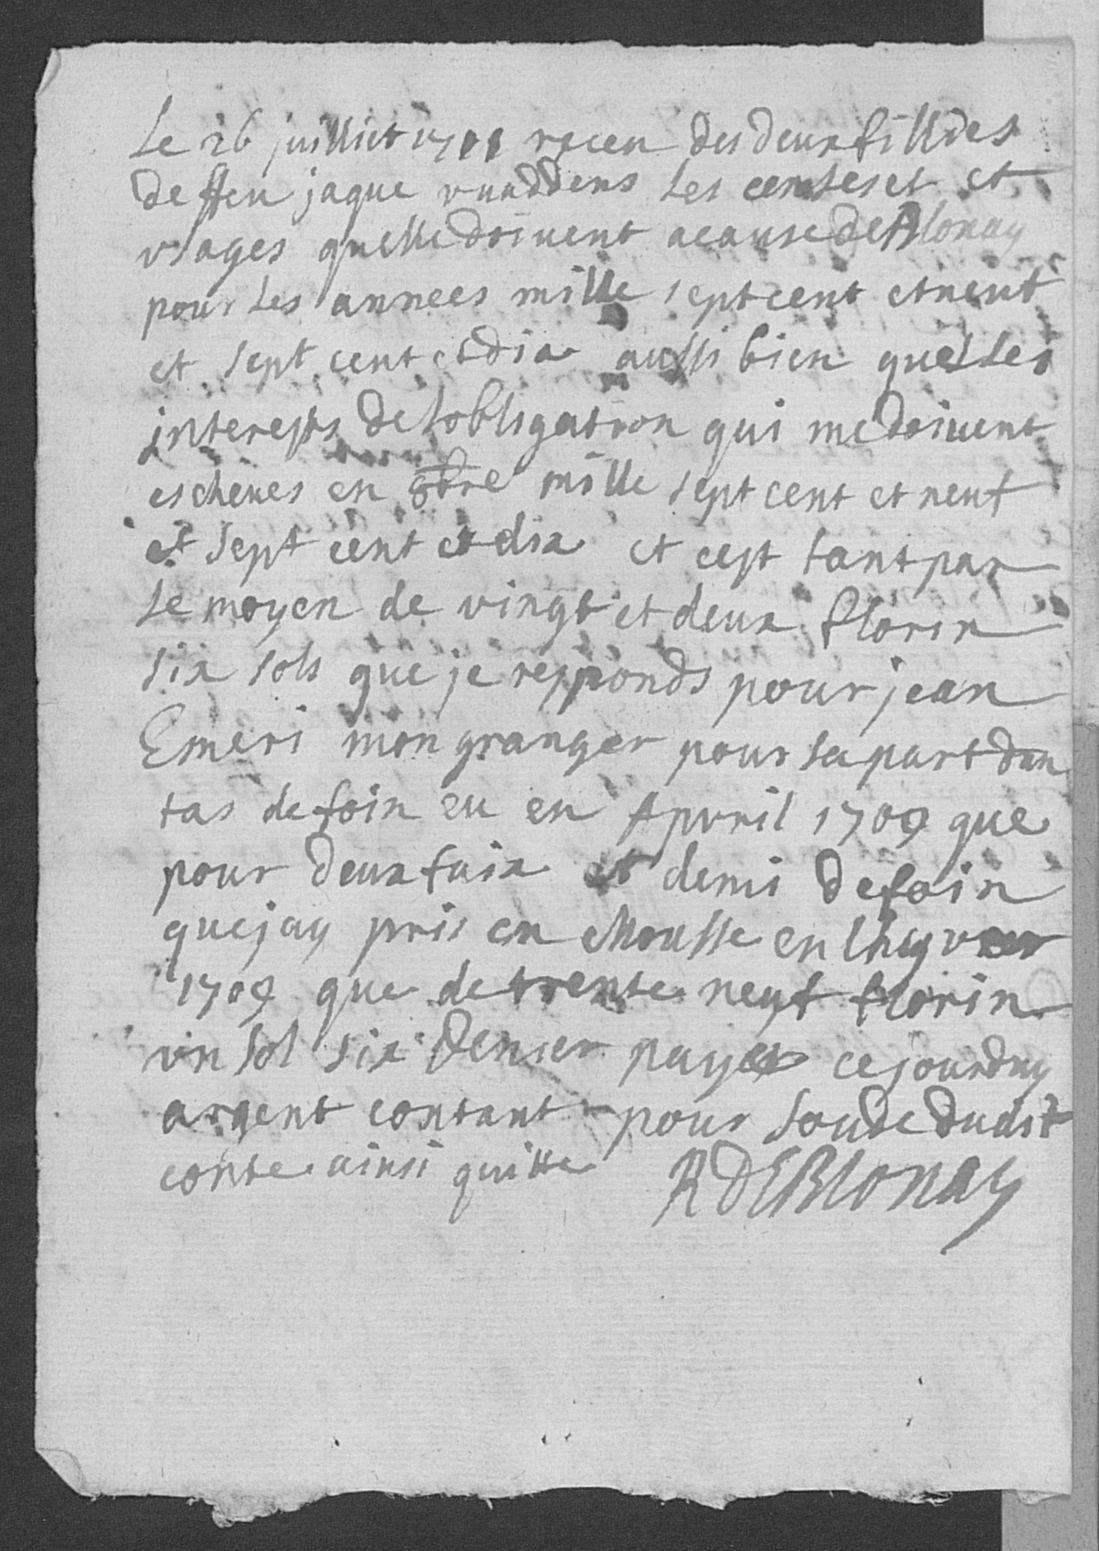 Le 26 juilliet 1711 receu des deux fillies
de ffeu jaque vuaddens les censes et et
vsages quelle doivent acause de Blonay
pour les annees mille sept cent et neuf
et sept cent et dix aussi bien que les
interests de lobligation qui me doivent
escheues en 8bre mille sept cent et neuf
et sept cent et dix et cest tant par
le moyen de vingt et deux florin
six sols que je responds pour jean
Emeri mon granger pour sa part dun
tas de foin eu en Apvril 1709 que
pour deux faix et demi de foin
que jay pris en Mousse en lhyver
1709 que de trente neuf florin
vn sol six denier payes ce jourduy
argent contant pour soude dudit
conte ainsi quitte R DE Blonay